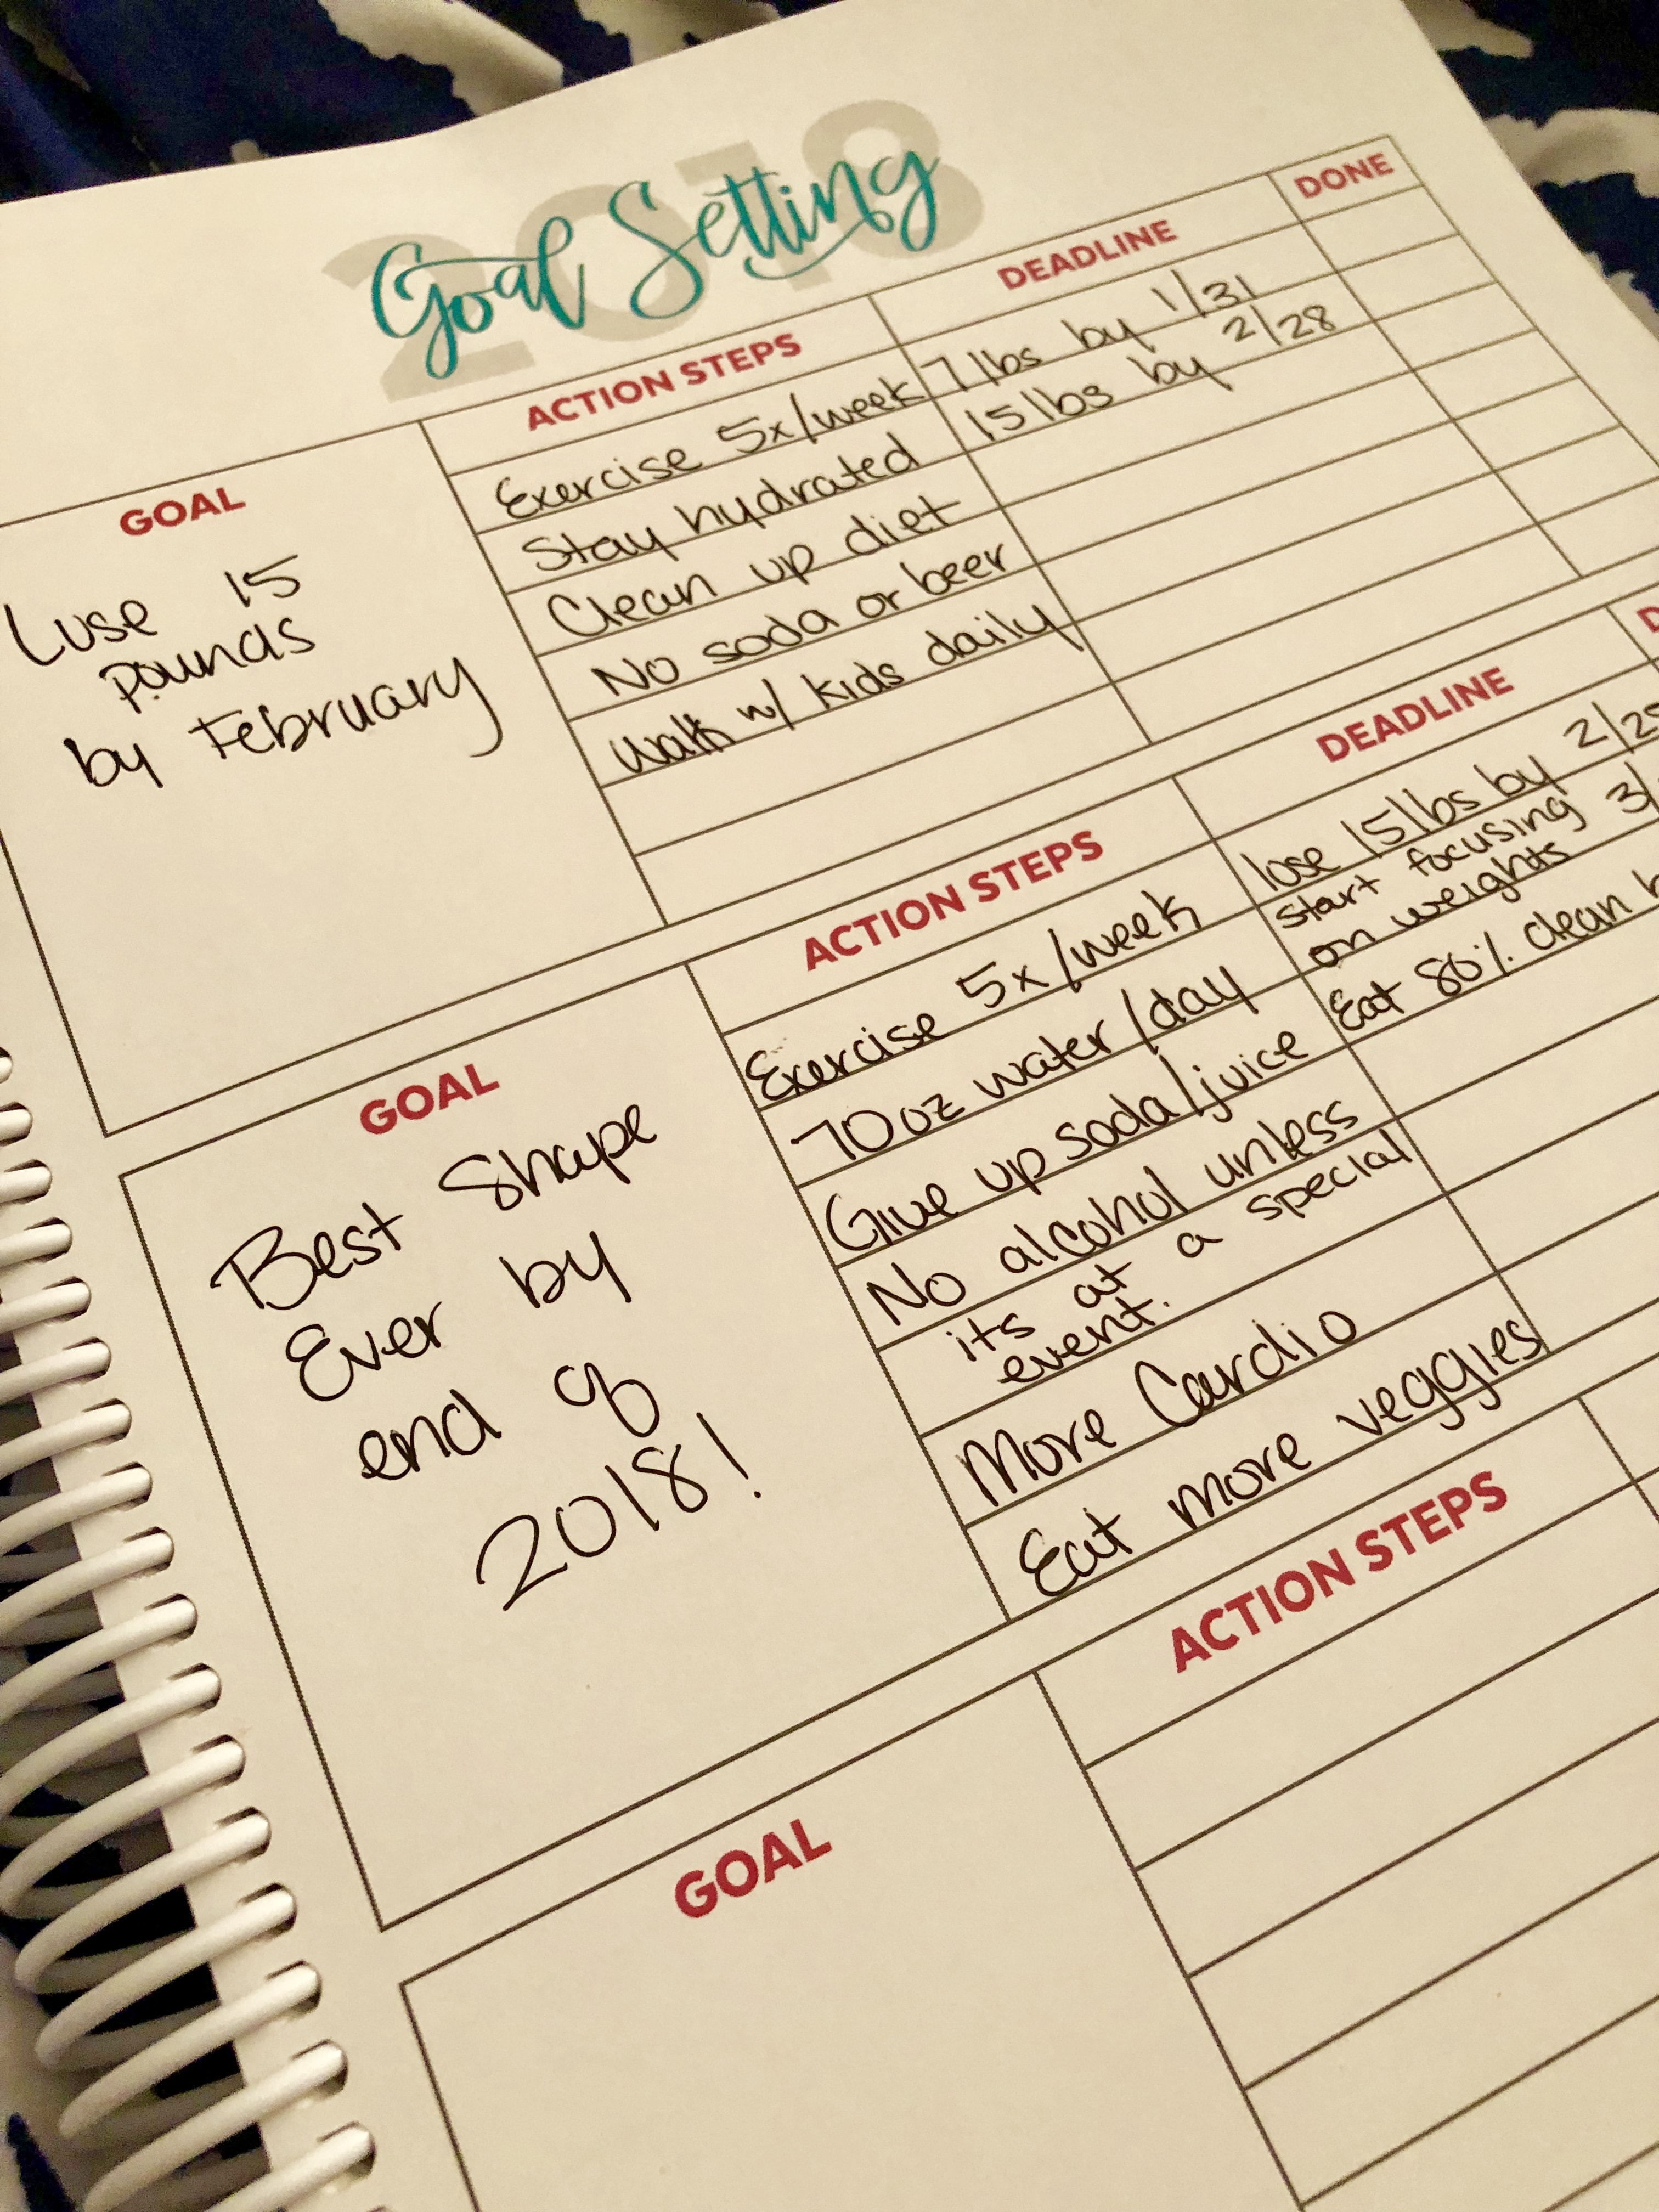 2018
Goal Setting
GOAL
ACTION STEPS
DEADLINE
DONE
Lose 15
Pounds
by February
Exercise 5x/week
Stay hydrated
Clean up diet
No soda or beer
Walk w/ kids daily
7 lbs by 1/31
15 lbs by 2/28
GOAL
ACTION STEPS
DEADLINE
Best Shape
Ever by
end of
2018!
Exercise 5x/week
70 oz water/day
Give up soda/juice
No alcohol unless
its at a special
event.
More Cardio
Eat more veggies
lose 15 lbs by
start focusing
on weights
Eat 80% clean
GOAL
ACTION STEPS